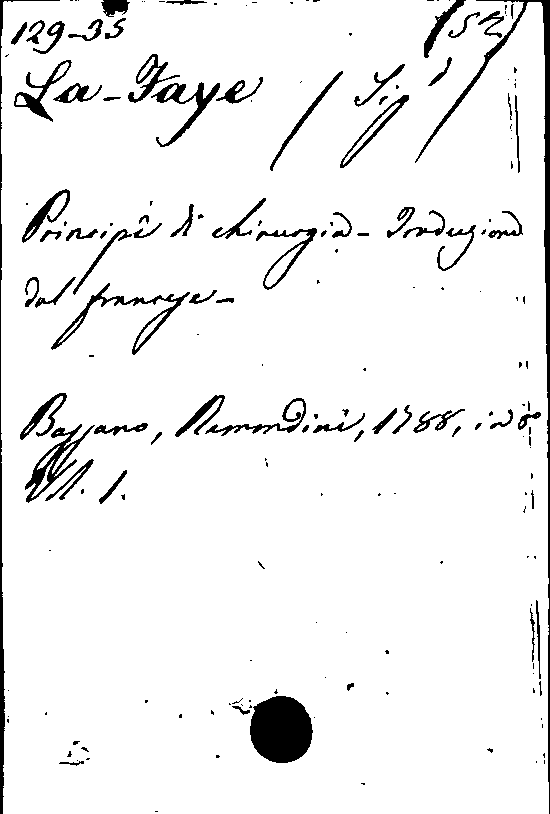 129-35 (52)
La-Faye / Sigr /
Principi di chirurgia - Traduzione
dal francese -
Bassano, Remondini, 1788, in 8o
Vol. 1.